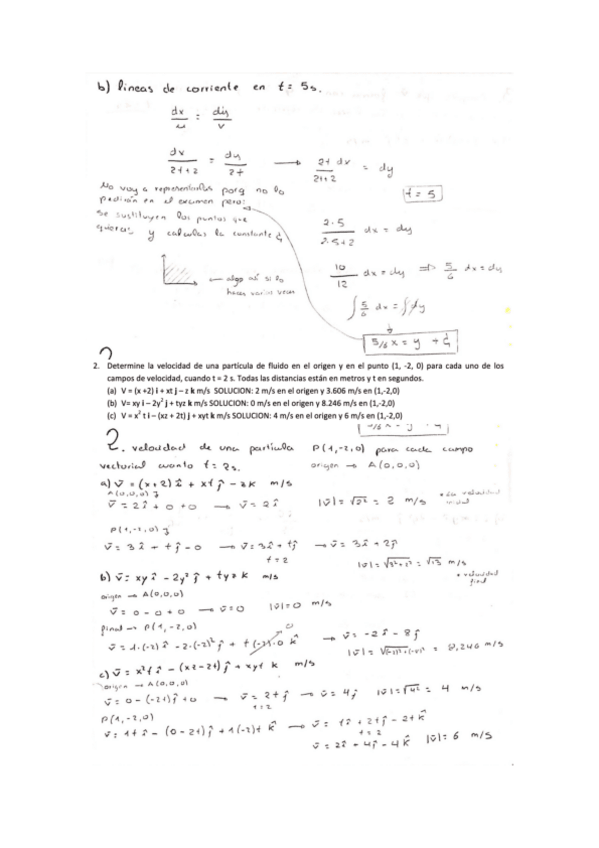 b) líneas de corriente en t = 5s.
dx/u = dy/v
dx/2t+2 = dy/2t → 2t dx/2t+2 = dy
No voy a representarlas porq no lo
pedirán en el examen pero:
t = 5
se sustituyen los puntos que
quieras y calculas la constante C
2·5/2·5+2 dx = dy
10/12 dx = dy ⇒ 5/6 dx = dy
← algo así si lo
haces varias veces
∫ 5/6 dx = ∫ dy
5/6 x = y + C
2. Determine la velocidad de una partícula de fluido en el origen y en el punto (1, -2, 0) para cada uno de los
campos de velocidad, cuando t = 2 s. Todas las distancias están en metros y t en segundos.
(a) V = (x +2) i + xt j – z k m/s SOLUCION: 2 m/s en el origen y 3.606 m/s en (1,-2,0)
(b) V= xy i – 2y² j + tyz k m/s SOLUCION: 0 m/s en el origen y 8.246 m/s en (1,-2,0)
(c) V = x² t i – (xz + 2t) j + xyt k m/s SOLUCION: 4 m/s en el origen y 6 m/s en (1,-2,0)
2. velocidad de una partícula P(1,-2,0) para cada campo
vectorial cuanto t = 2s. origen → A(0,0,0)
a) v̄ = (x+2) î + xt ĵ - zk m/s
A(0,0,0)
v̄ = 2î + 0 + 0 → v̄ = 2î |v̄| = √2² = 2 m/s
P(1,-2,0)
v̄ = 3î + tĵ - 0 → v̄ = 3î + tĵ → v̄ = 3î + 2ĵ
t = 2
|v̄| = √3²+2² = √13 m/s
* velocidad
final
b) v̄ = xy î - 2y² ĵ + tyz k m/s
origen → A(0,0,0)
v̄ = 0 - 0 + 0 → v̄ = 0 |v̄| = 0 m/s
final → P(1,-2,0)
v̄ = 1·(-2) î - 2·(-2)² ĵ + t(-2)·0 k̂ → v̄ = -2î - 8ĵ
|v̄| = √(-2)²+(-8)² = 8,246 m/s
c) v̄ = x²t î - (xz-2t) ĵ + xyt k m/s
origen → A(0,0,0)
v̄ = 0 - (-2t) ĵ + 0 → v̄ = 2tĵ → v̄ = 4ĵ |v̄| = √4² = 4 m/s
t = 2
P(1,-2,0)
v̄ = 1t î - (0-2t) ĵ + 1(-2)t k̂ → v̄ = tî + 2tĵ - 2t k̂
t = 2
v̄ = 2î + 4ĵ - 4k̂ |v̄| = 6 m/s